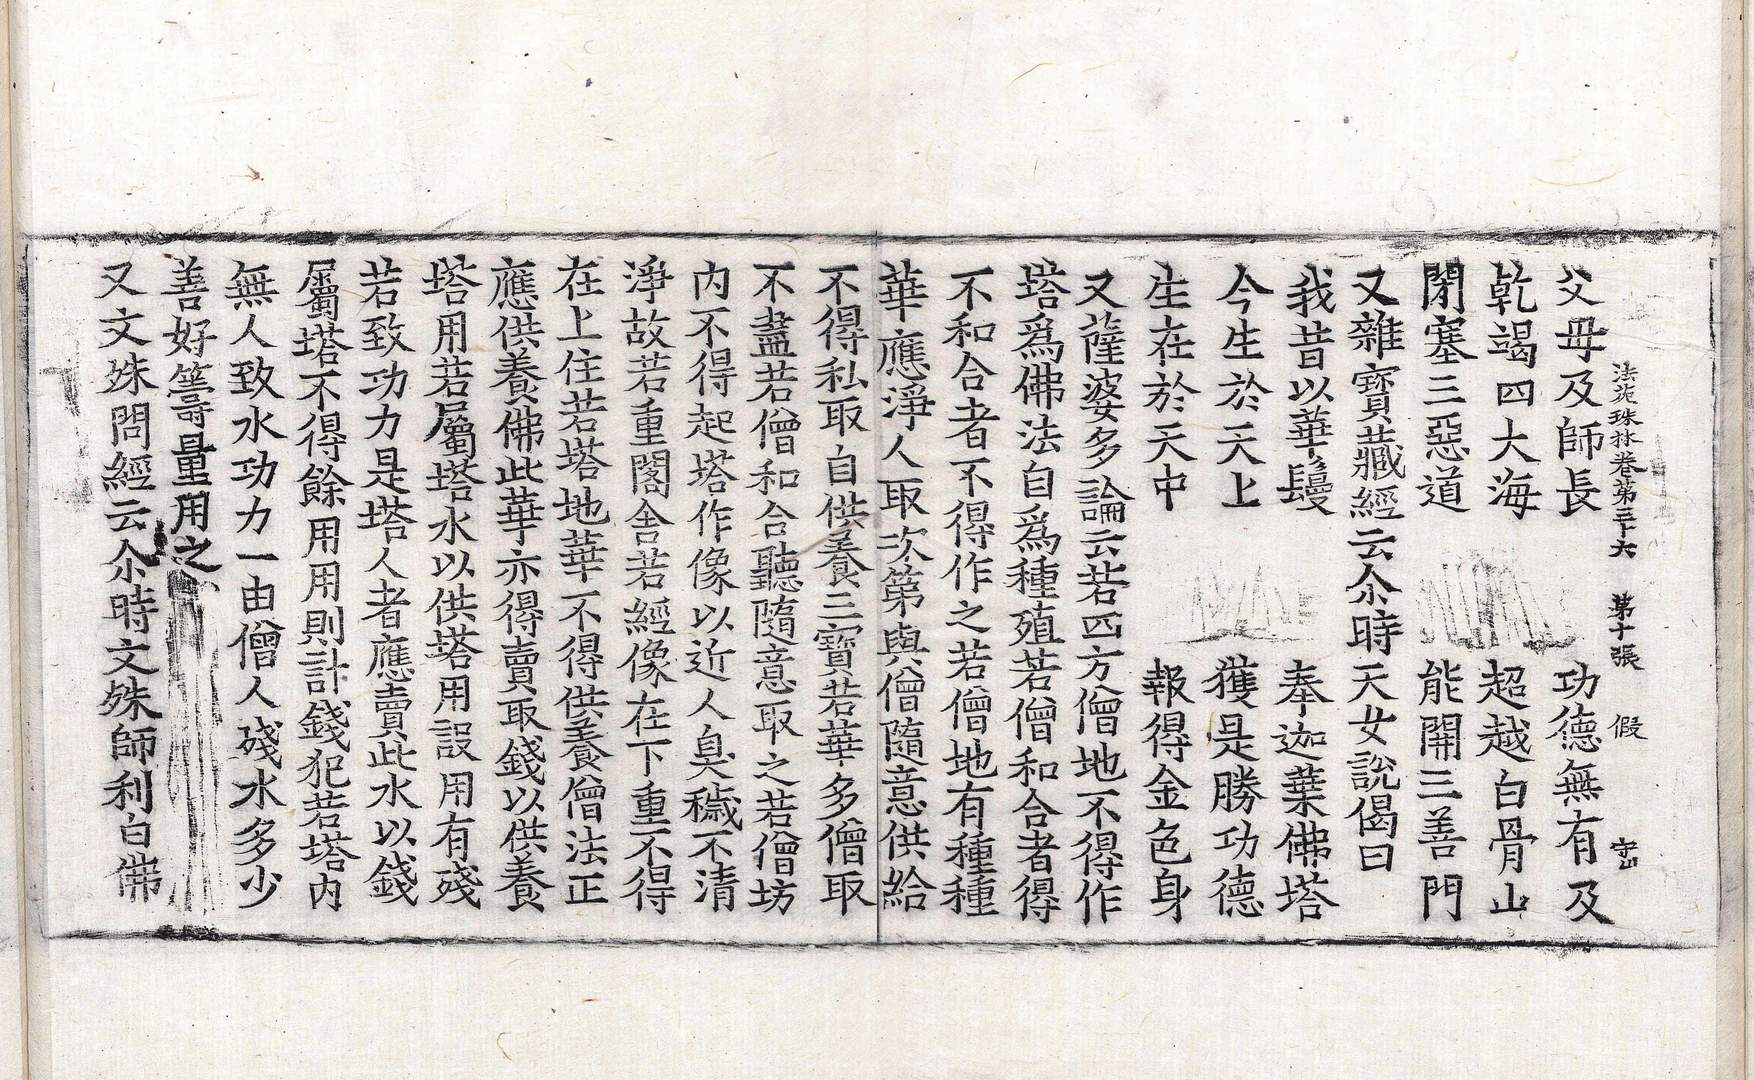 法苑珠林卷第三十六 第十張 假 守山
父母及師長 功德無有及
乾竭四大海 超越白骨山
閉塞三惡道 能開三善門
又雜寶藏經云尒時天女說偈曰
我昔以華鬘 奉迦葉佛塔
今生於天上 獲是勝功德
生在於天中 報得金色身
又薩婆多論云若四方僧地不得作
塔爲佛法自爲種殖若僧和合者得
不和合者不得作之若僧地有種種
華應淨人取次第與僧隨意供給
不得私取自供養三寶若華多僧取
不盡若僧和合聽隨意取之若僧坊
內不得起塔作像以近人臭穢不清
淨故若重閣舍若經像在下重不得
在上住若塔地華不得供養僧法正
應供養佛此華亦得賣取錢以供養
塔用若屬塔水以供塔用設用有殘
若致功力是塔人者應賣此水以錢
屬塔不得餘用用則計錢犯若塔內
無人致水功力一由僧人殘水多少
善好筭量用之
又文殊問經云尒時文殊師利白佛